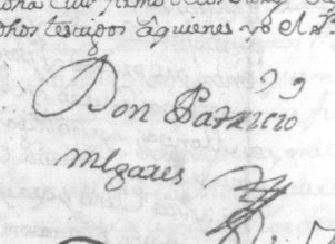 dhos testigos aquienes yo el
Don Patricio
Melgares